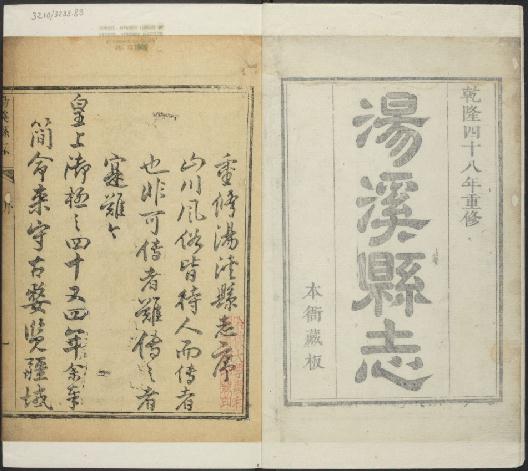 乾隆四十八年重修
湯溪縣志
本衙藏板
重修湯溪縣志序
山川風俗皆待人而傳者
也非可傳者難傳之者
寔難々
皇上御極之四十又四年余奉
簡命來守古婺覽疆域
3210/3238.83